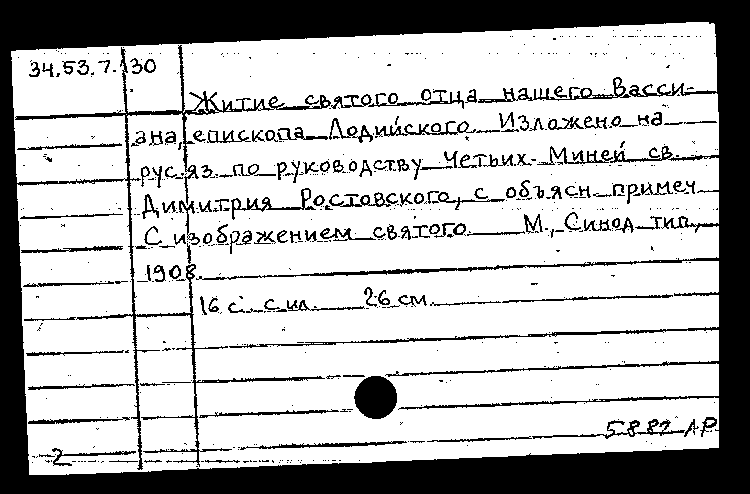 34.53.7.130
Житие святого отца нашего Васси-
ана, епископа Лодийского. Изложено на
рус. яз. по руководству Четьих-Миней св.
Димитрия Ростовского, с объясн. примеч.
С изображением святого. М., Синод. тип.,
1908.
16 с. с ил. 26 см.
5882 АР
2